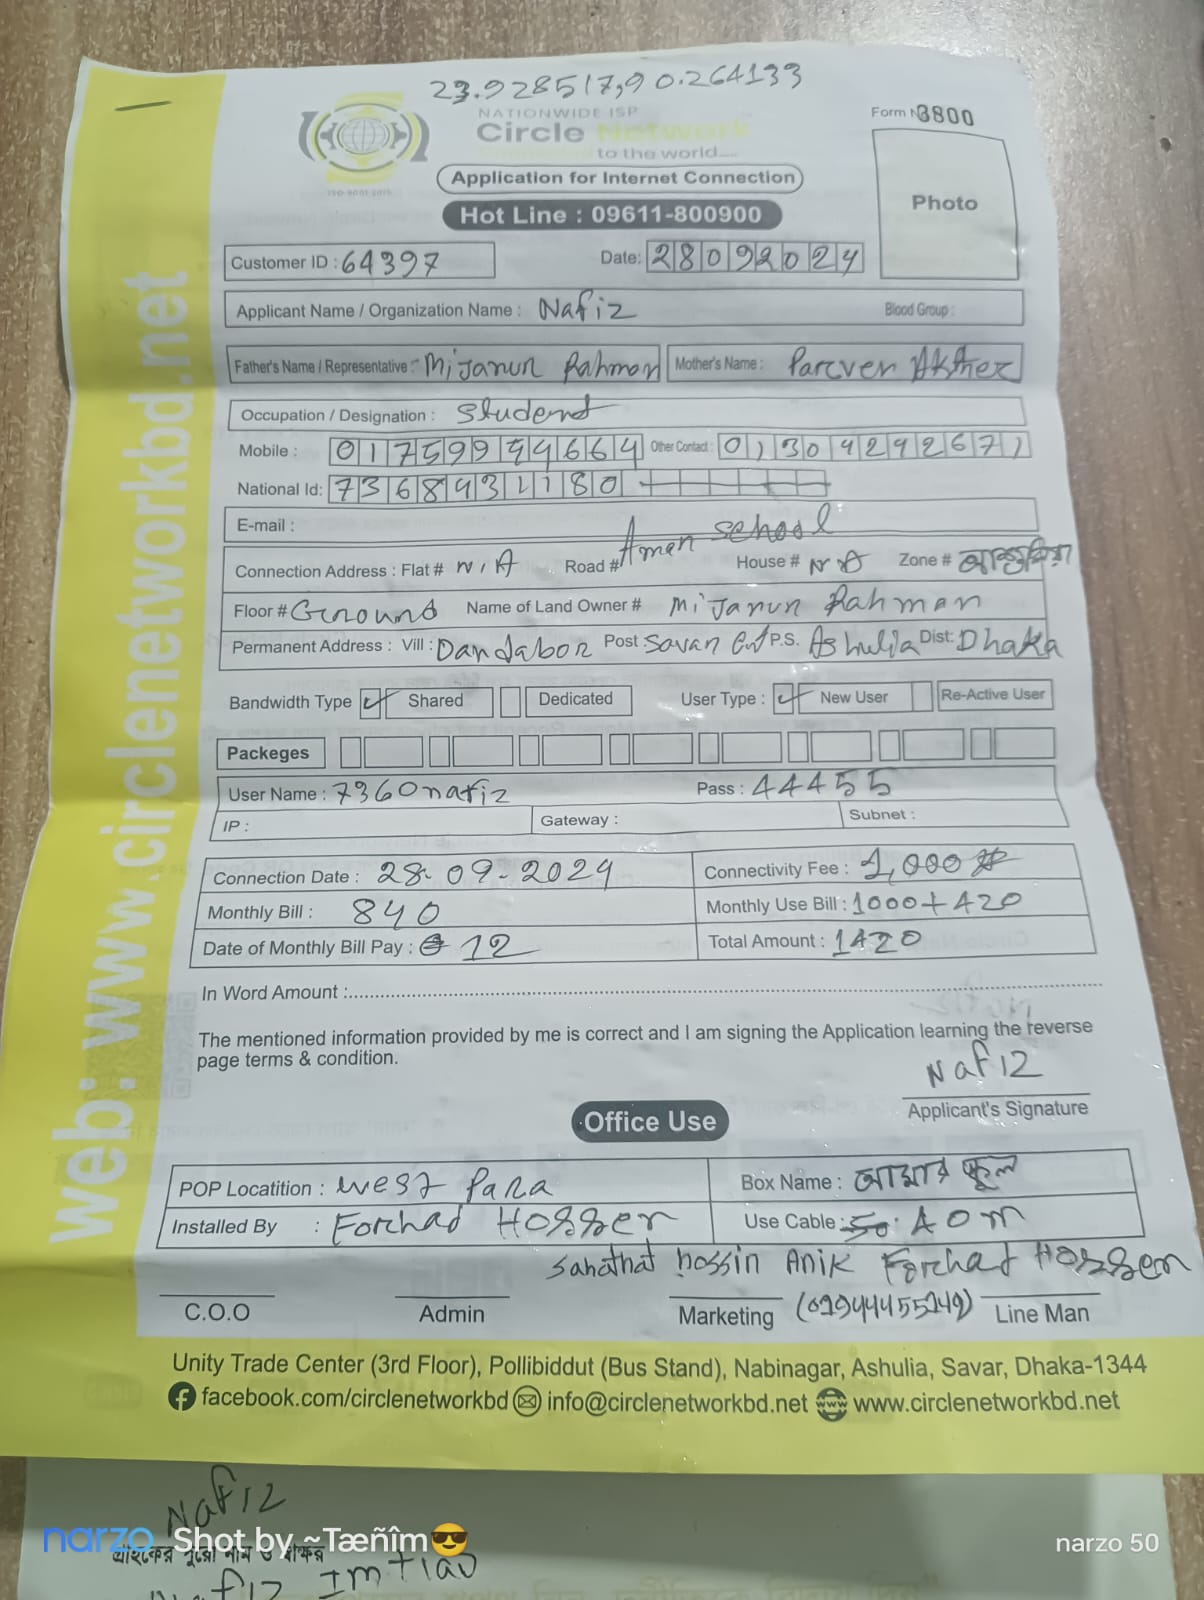 23.928517,90.264133
NATIONWIDE ISP
Circle Network
to the world....
ISO-9001:2015
Form N 3800
Photo
Application for Internet Connection
Hot Line : 09611-800900
Customer ID : 64397 Date: 28092024
Applicant Name / Organization Name : Nafiz Blood Group :
Father's Name / Representative : Mijanur Rahman Mother's Name : Parven Akther
Occupation / Designation : Student
Mobile : 01759954664 Other Contact : 01304292671
National Id: 7368431180
E-mail :
Connection Address : Flat # N/A Road # Aman school House # N A Zone #
Floor # Ground Name of Land Owner # Mijanur Rahman
Permanent Address : Vill : Dandabor Post Savar Cnt P.S. Ashulia Dist: Dhaka
Bandwidth Type Shared Dedicated User Type : New User Re-Active User
Packeges
User Name : 7360nafiz Pass : 44455
IP : Gateway : Subnet :
Connection Date : 28-09-2024 Connectivity Fee : 1,000
Monthly Bill : 840 Monthly Use Bill : 1000+420
Date of Monthly Bill Pay : 12 Total Amount : 1420
In Word Amount :
The mentioned information provided by me is correct and I am signing the Application learning the reverse
page terms & condition.
Nafiz
Applicant's Signature
Office Use
POP Locatition : West Para Box Name : আমার স্কুল
Installed By : Forhad Hossen Use Cable : 50 40m
Sahathat hossin Anik Forhad Hossen
C.O.O Admin Marketing (01944455149) Line Man
web: www.circlenetworkbd.net
Unity Trade Center (3rd Floor), Pollibiddut (Bus Stand), Nabinagar, Ashulia, Savar, Dhaka-1344
facebook.com/circlenetworkbd info@circlenetworkbd.net www.circlenetworkbd.net
Nafiz
narzo Shot by ~Tæñîm😎 narzo 50
গ্রাহকের পুরো নাম ও স্বাক্ষর
Nafiz Imtiaz